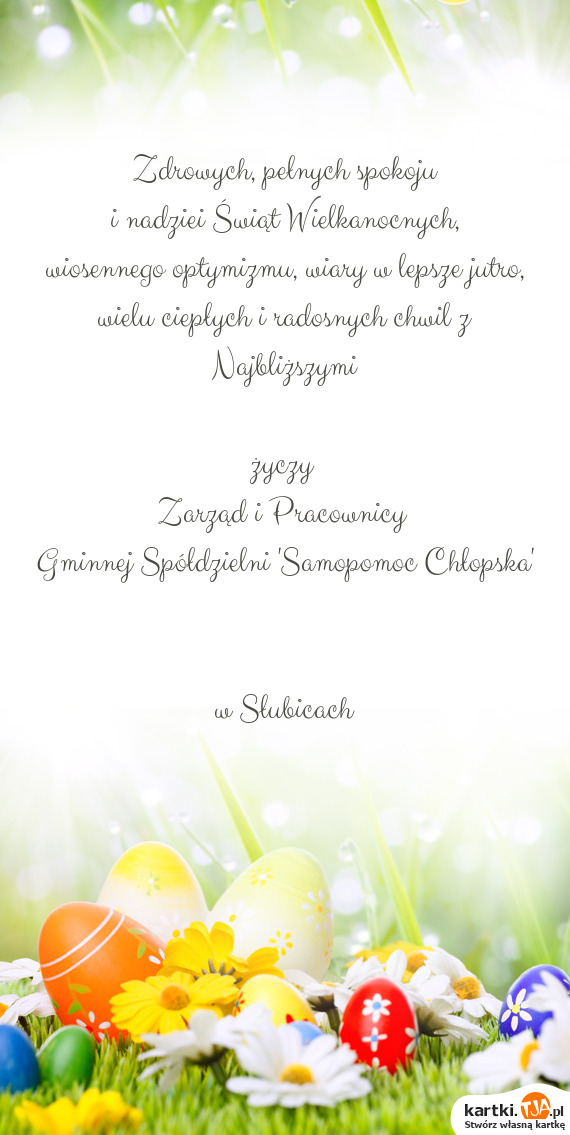 Zdrowych, pełnych spokoju
i nadziei Świąt Wielkanocnych,
wiosennego optymizmu, wiary w lepsze jutro,
wielu ciepłych i radosnych chwil z
Najbliższymi
życzy
Zarząd i Pracownicy
Gminnej Spółdzielni 'Samopomoc Chłopska'
w Słubicach
kartki.TJA.pl
Stwórz własną kartkę